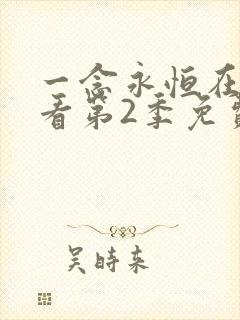 一念永恒在
看第2季免
吴时来